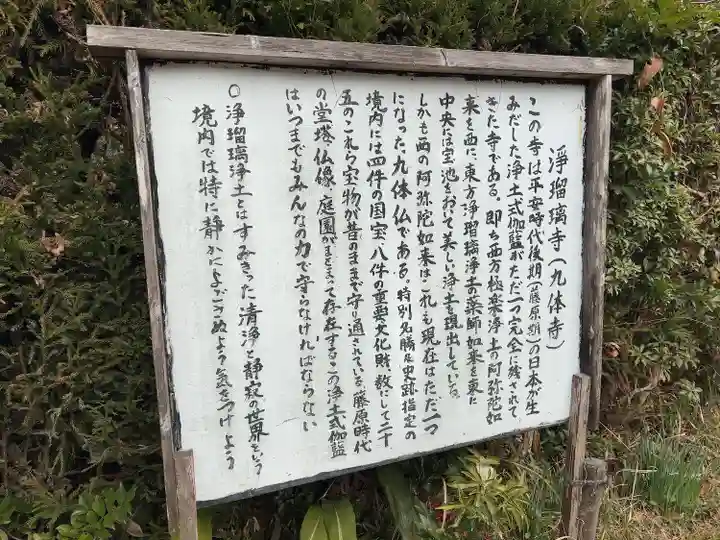 浄瑠璃寺(九体寺)
この寺は平安時代後期(藤原期)の日本が生
みだした浄土式伽藍がただ一つ完全に残されて
きた寺である。即ち西方極楽浄土の阿弥陀如
来を西に、東方浄瑠璃浄土の薬師如来を東に
中央には宝池をおいて美しい浄土を現出している。
しかも西の阿弥陀如来は、これも現在はただ一つ
になった九体仏である。特別名勝及史跡指定の
境内には四件の国宝、八件の重要文化財、数にして二十
五のこれら宝物が昔のままで守り通されている。藤原時代
の堂塔、仏像、庭園がまとまって存在するこの浄土式伽藍
はいつまでもみんなの力で守らなければならない
○浄瑠璃浄土とはすみきった清浄と静寂の世界をいう
境内では特に静かによごさぬよう気をつけよう